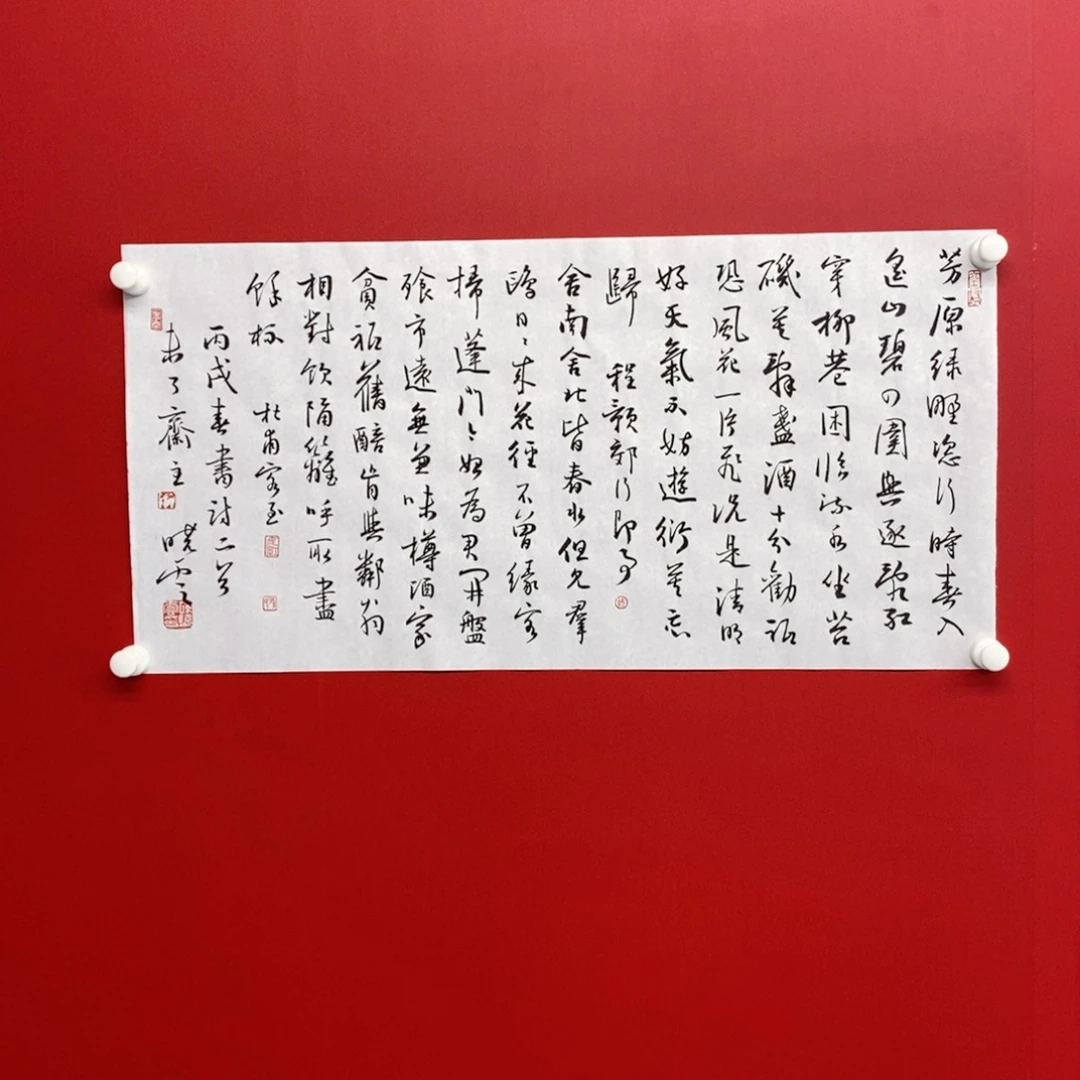 芳原绿野恣行時春入
遙山碧四圍興逐亂紅
穿柳巷困臨流水坐苔
磯莫辭盞酒十分勸祇
恐風花一片飛況是清明
好天氣不妨遊衍莫忘
歸 程顥郊行即事
舍南舍北皆春水但見羣
鷗日〻來花徑不曾緣客
掃蓬門今始為君開盤
飱市遠無兼味樽酒家
貧祇舊醅肯與鄰翁
相對飲隔籬呼取盡
餘杯 杜甫客至
丙戌春書詩二首
未了齋主 曉雲